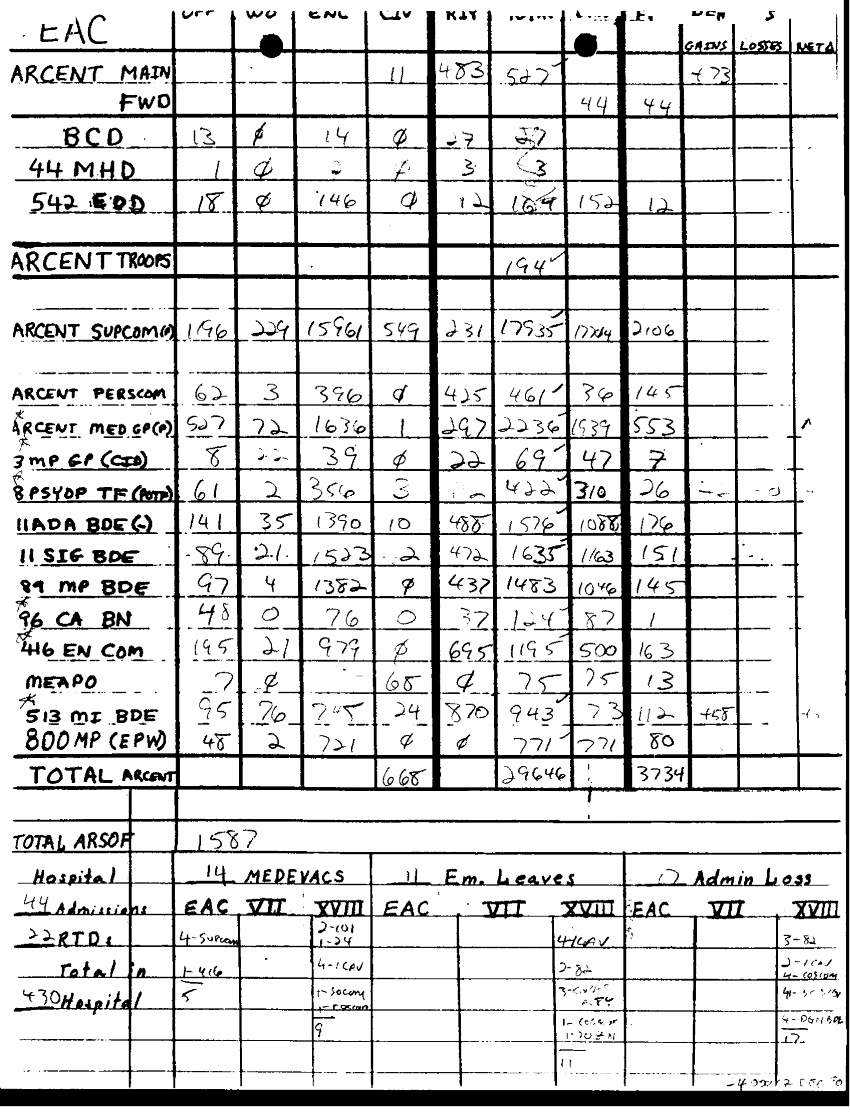 EAC OFF WO ENL CIV
GAINS LOSSES NET Δ
ARCENT MAIN 11 483 527✓ +73
FWD 44 44
BCD 13 ∅ 14 ∅ 27 27
44 MHD 1 ∅ 2 3 3
542 EOD 18 ∅ 146 ∅ 12 164 152 12
ARCENT TROOPS 194✓
ARCENT SUPCOM(P) 1196 229 15961 549 231 17935✓ 2106
ARCENT PERSCOM 62 3 396 ∅ 425 461✓ 36 145
*ARCENT MED GP(P) 527 72 1636 1 297 2236✓ 1939 553
*3 MP GP (CID) 8 22 39 ∅ 22 69✓ 47 7
*8 PSYOP TF 61 2 356 3 422✓ 310 26
11 ADA BDE (-) 141 35 1390 10 488 1576✓ 1088 176
11 SIG BDE 89 21 1523 2 472 1635✓ 1163 151
89 MP BDE 97 4 1382 ∅ 437 1483 1046 145
*96 CA BN 48 0 76 0 37 124✓ 87 1
*416 EN COM 195 21 979 ∅ 695 1195✓ 500 163
MEAPO 7 ∅ 68 ∅ 75✓ 75 13
*513 MI BDE 95 76 745 24 870 943✓ 73 112 +58
800 MP (EPW) 48 2 721 ∅ ∅ 771✓ 771 80
TOTAL ARCENT 668 29646 3734
TOTAL ARSOF 1587
Hospital 14 MEDEVACS 11 Em. Leaves 17 Admin Loss
44 Admissions EAC VII XVIII EAC VII XVIII EAC VII XVIII
2-101
22 RTDs 4-SUPCOM 1-24 4-1CAV 3-82
Total in 1-416 4-1CAV 2-82 2-1CAV
4-COSCOM
430 Hospital 5 1-SOCOM
1-COSCOM
9
17
11